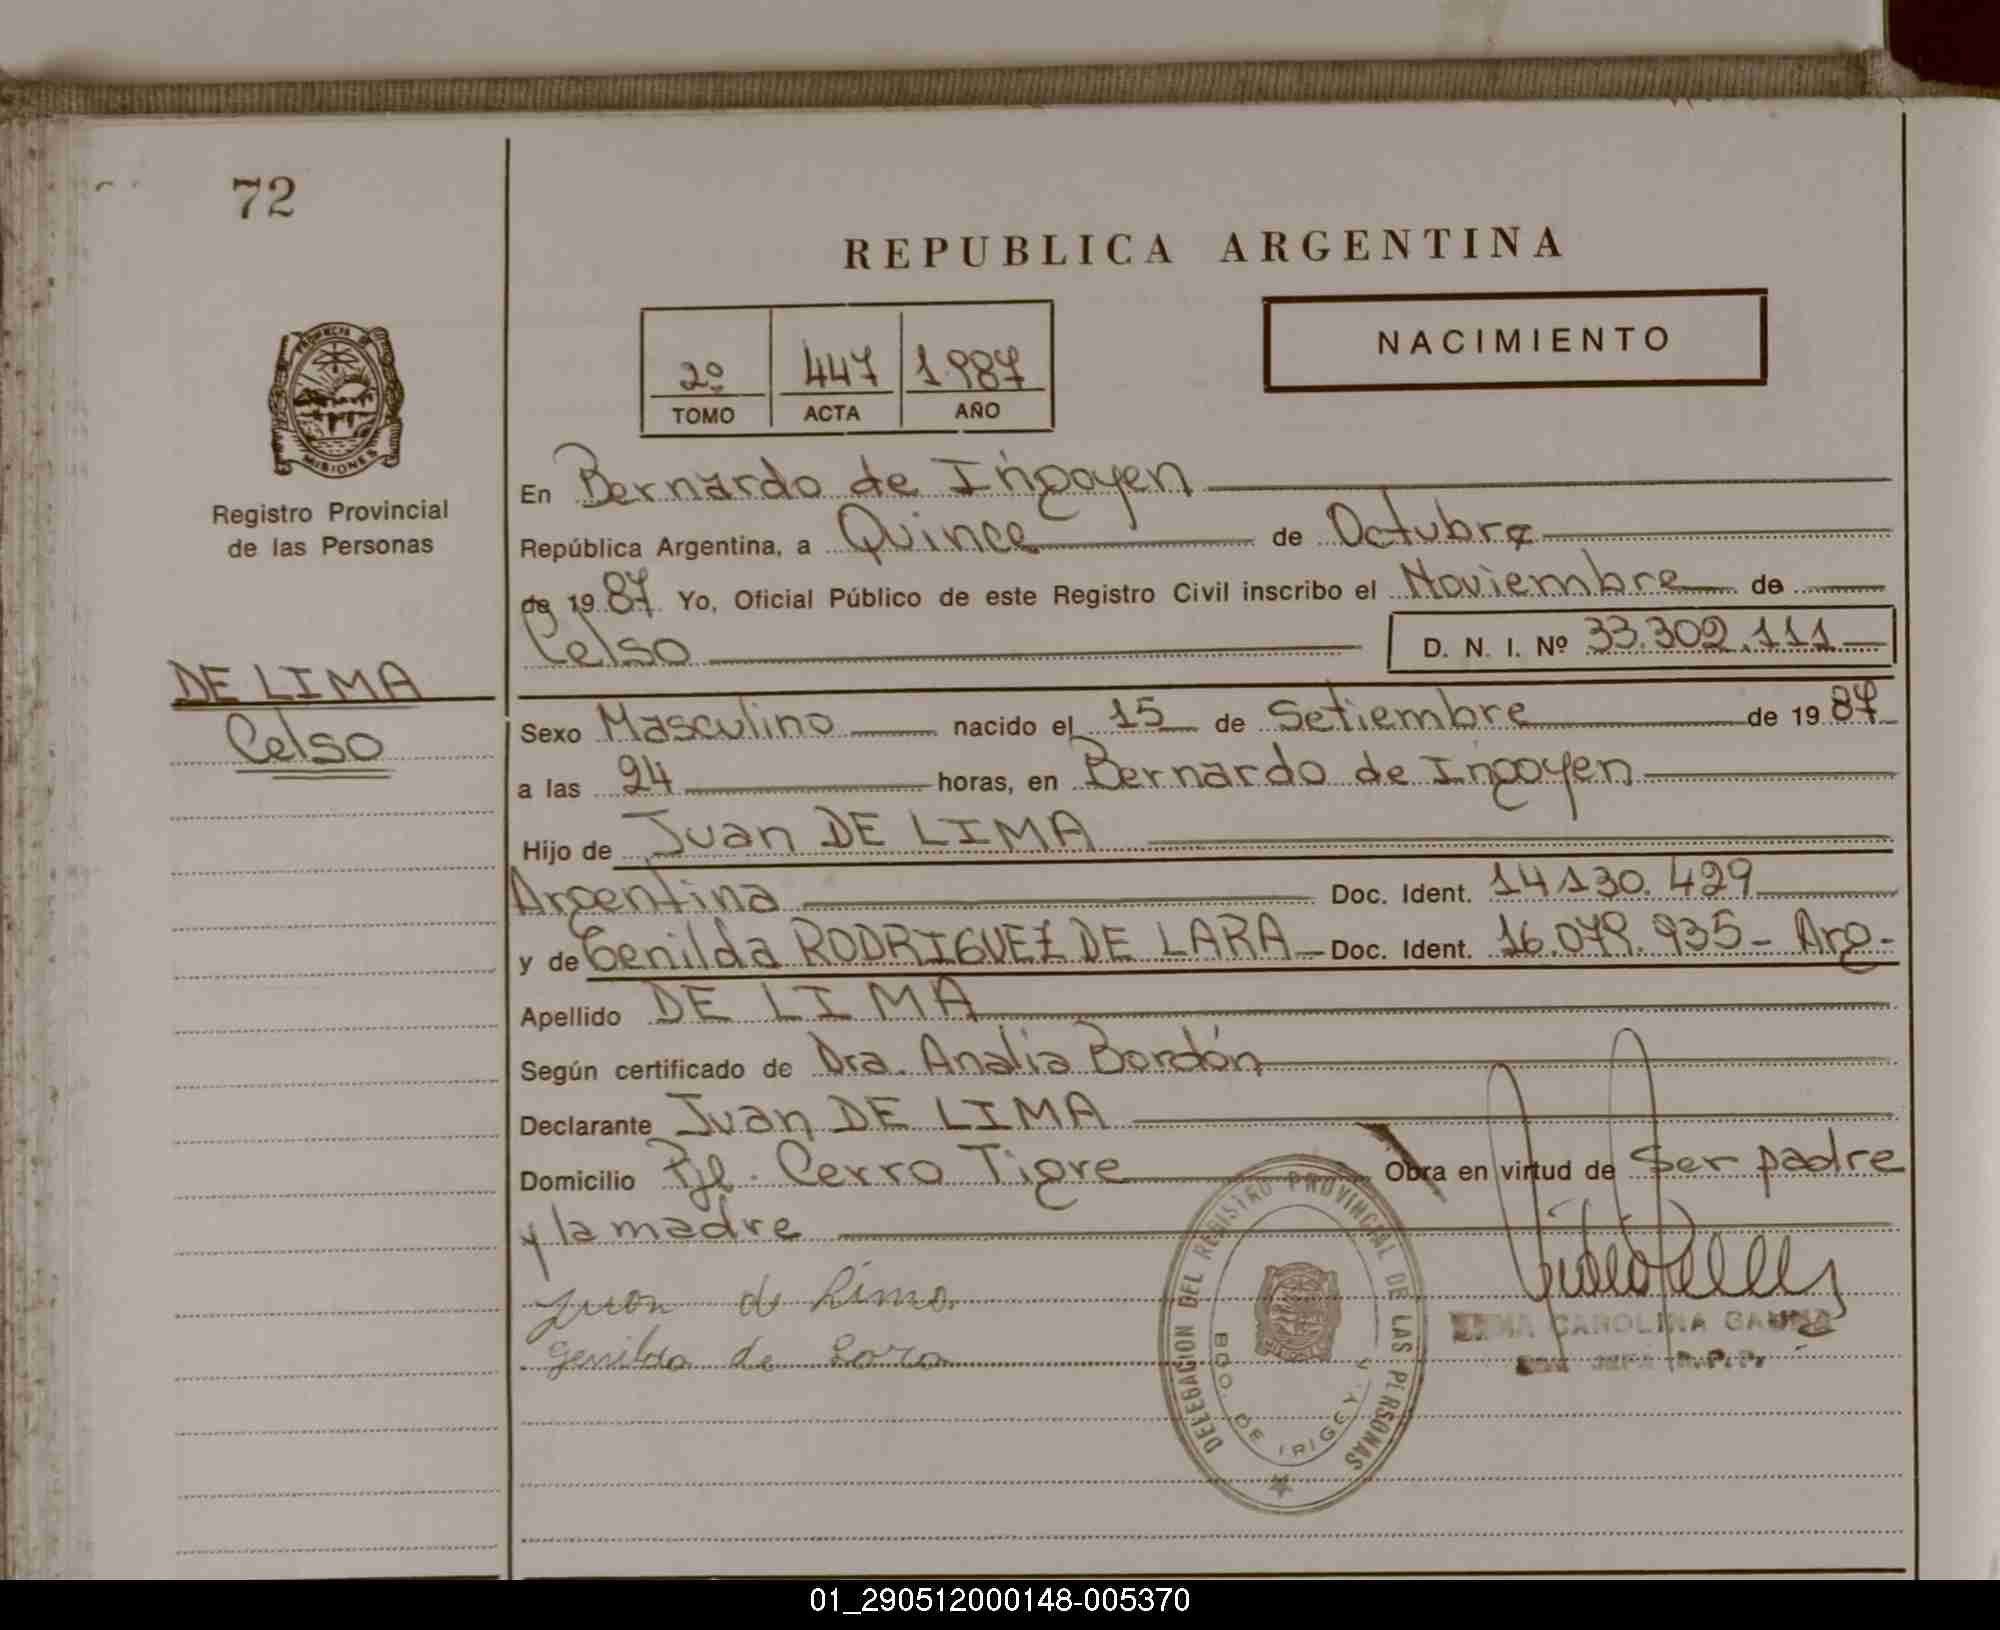 72
REPUBLICA ARGENTINA
NACIMIENTO
2º 447 1987
TOMO ACTA AÑO
PROVINCIA DE
MISIONES
Registro Provincial
de las Personas
En Bernardo de Irigoyen
República Argentina, a Quince de Octubre
de 1987 Yo, Oficial Público de este Registro Civil inscribo el Noviembre de
Celso D. N. I. Nº 33.302.111
DE LIMA
Celso
Sexo Masculino nacido el 15 de Setiembre de 1987
a las 24 horas, en Bernardo de Irigoyen
Hijo de Juan DE LIMA
Argentina Doc. Ident. 14130.429
y de Genilda RODRIGUEZ DE LARA Doc. Ident. 16.079.935 - Arg-
Apellido DE LIMA
Según certificado de Dra. Analia Bordón
Declarante Juan DE LIMA
Domicilio Pje. Cerro Tigre Obra en virtud de Ser padre
y la madre
Juan de Lima
Genilda de Lara
DELEGACION DEL REGISTRO PROVINCIAL DE LAS PERSONAS
BDO. DE IRIGOYEN
CAROLINA
JEFA R.P.P.
01_290512000148-005370